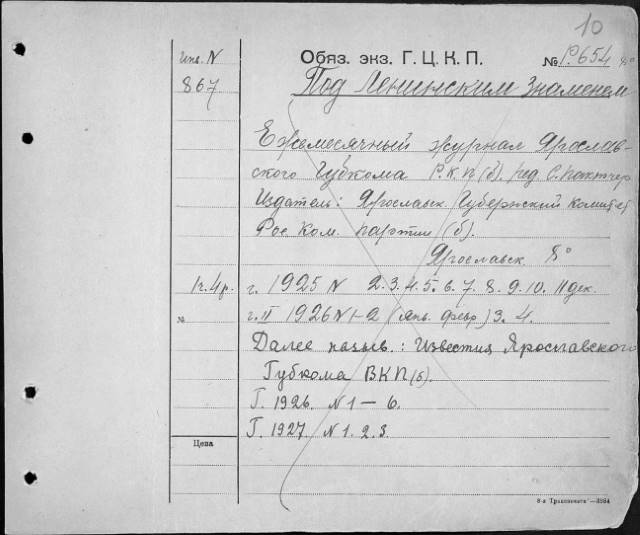 10
Инв. N
Обяз. экз. Г. Ц. К. П.
№ Р.654 8°
867
Под Ленинским Знаменем
Ежемесячный журнал Ярослав-
ского Губкома Р.К.П(б). ред. С.
Издатель: Ярославск. Губернский комитет
Рос. Ком. партии (б).
Ярославск 8°
г. 1925 N 2. 3. 4. 5. 6. 7. 8. 9. 10. 11 дек.
№
г. II 1926 N 1-2 (янв. февр) 3. 4.
Далее назыв.: Известия Ярославского
Губкома ВКП(б).
Г. 1926. N 1 – 6.
Г. 1927. N 1. 2. 3.
Цена
8-я —3384